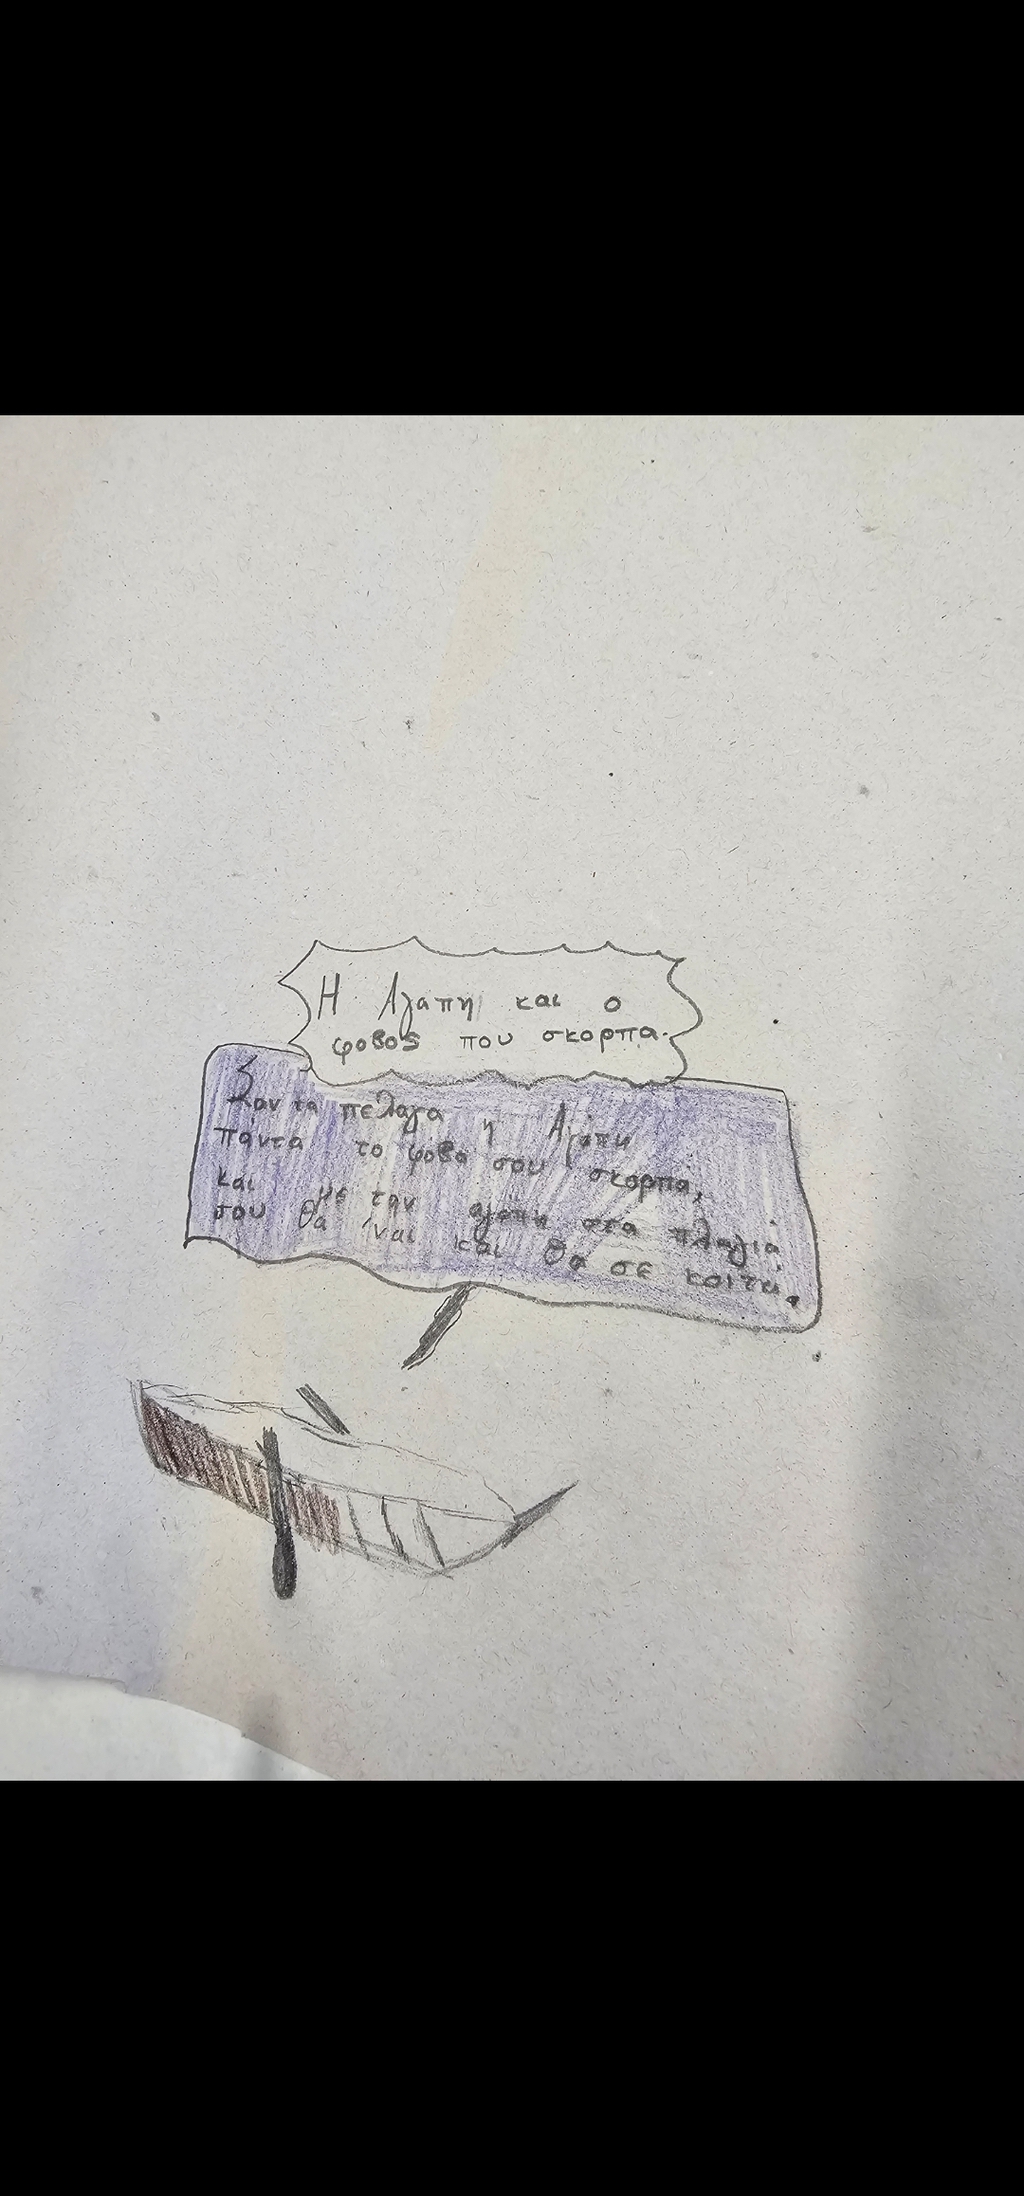 Η Αγαπη και ο
φοβος που σκορπα.
Σαν τα πελαγα η Αγαπη
πάντα το φοβο σου σκορπα,
και με την αγαπη στα πλαγιά
σου θα 'ναι και θα σε κοιτα.